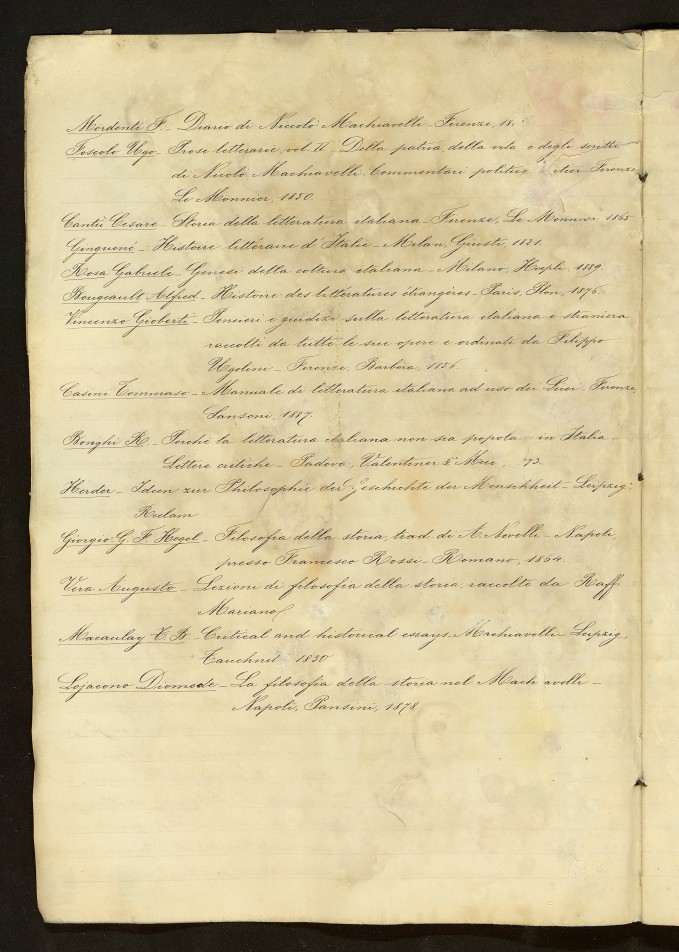 Mordenti F. - Diario di Niccolò Machiavelli - Firenze, 18.
Foscolo Ugo - Prose letterarie, vol. II - Della patria, della vita e degli scritti
di Nicolò Machiavelli. Commentari politici Firenze
Le Monnier, 1850.
Cantù Cesare - Storia della letteratura italiana - Firenze, Le Monnier, 1865
Ginguené - Histoire littéraire d'Italie - Milan, Giusti, 1821.
Rosa Gabriele - Genesi della coltura italiana - Milano, Hoepli, 1889.
Bougeault Alfred - Histoire des littératures étrangères - Paris, Plon, 1876
Vincenzo Gioberti - Pensieri e giudizi sulla letteratura italiana e straniera
raccolti da tutte le sue opere e ordinati da Filippo
Ugolini - Firenze, Barbèra, 1856
Casini Tommaso - Manuale di letteratura italiana ad uso dei Licei. Firenze,
Sansoni, 1887.
Bonghi R. - Perchè la letteratura italiana non sia popola in Italia -
Lettere critiche - Padova, Valentiner & Mue 73.
Herder - Ideen zur Philosophie der Geschichte der Menschheit - Leipzig.
Reclam
Giorgio G. F. Hegel - Filosofia della storia, trad. di A. Novelli - Napoli,
presso Francesco Rossi-Romano, 1864.
Vera Augusto - Lezioni di filosofia della storia, raccolte da Raff.
Mariano
Macaulay T. B. - Critical and historical essays. Machiavelli - Leipzig,
Tauchnit 1850
Lojacono Diomede - La filosofia della storia nel Mach avelli -
Napoli, Pansini, 1878